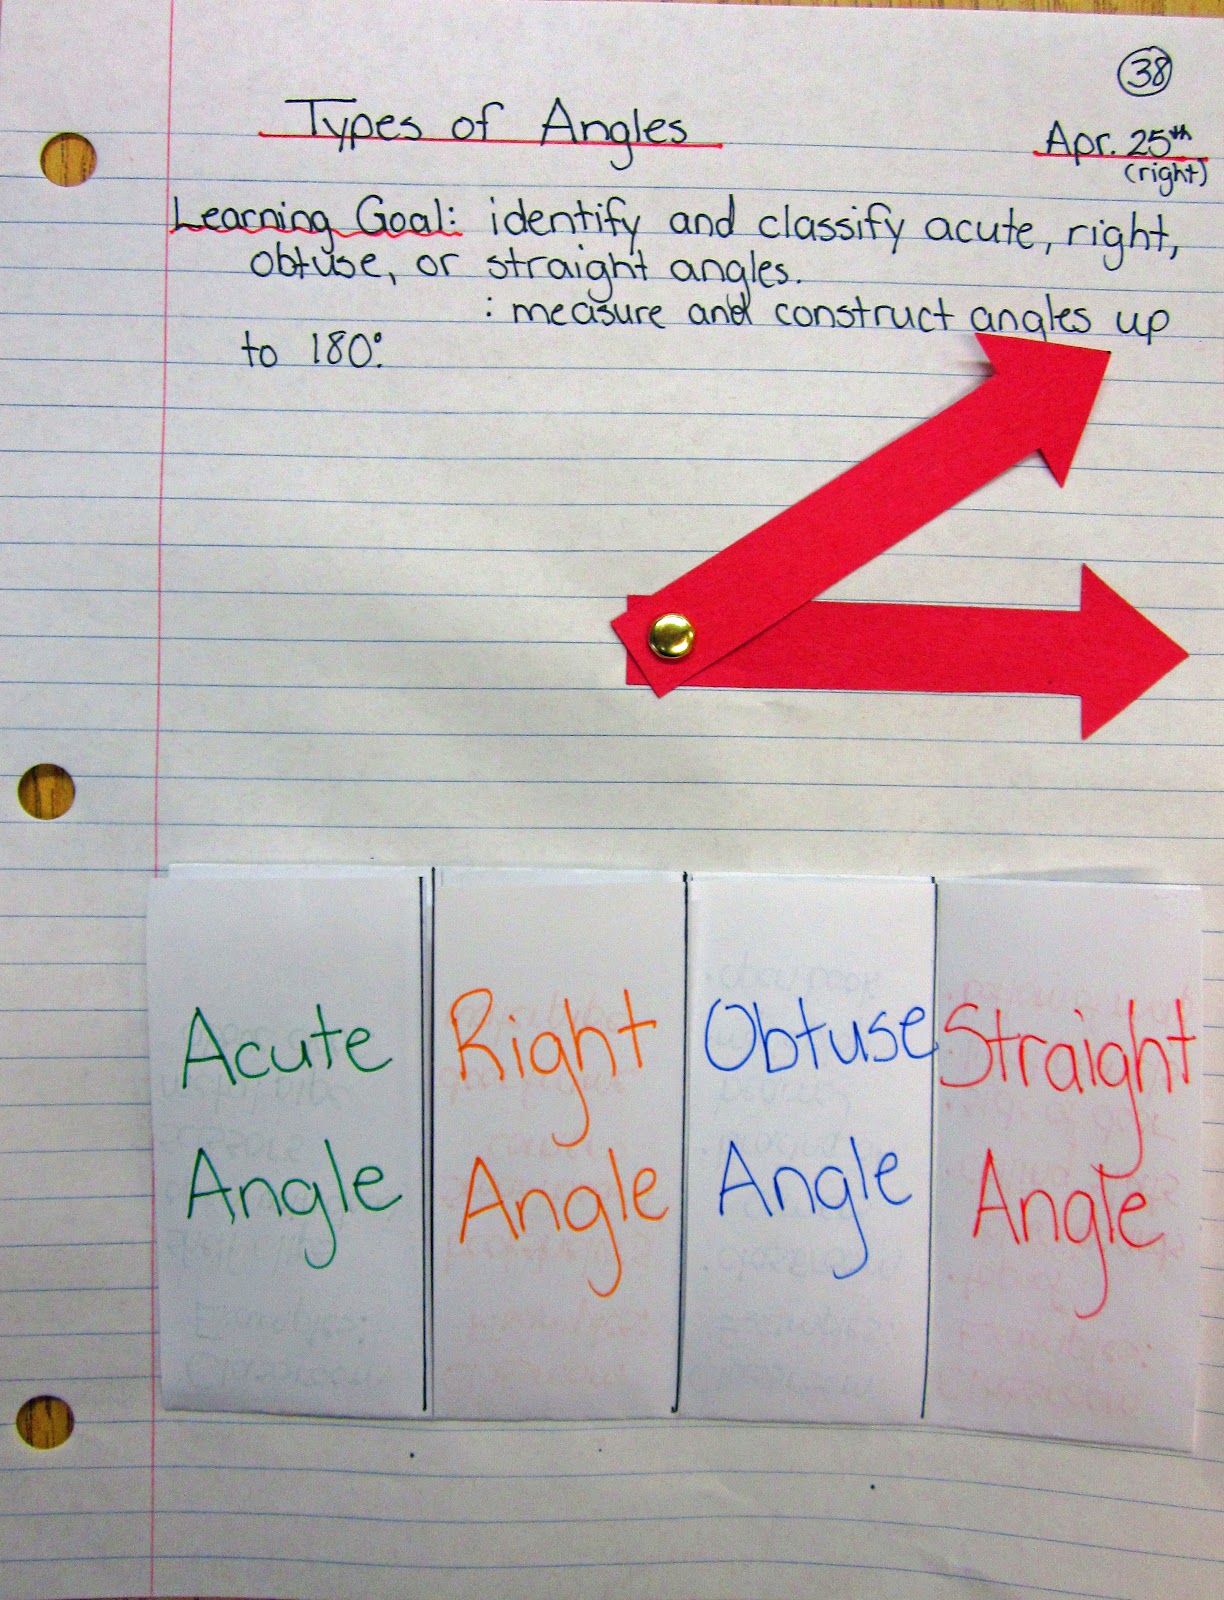 38
Types of Angles
Apr. 25th
(right)
Learning Goal: identify and classify acute, right,
obtuse, or straight angles.
: measure and construct angles up
to 180°.
Acute
Angle
Right
Angle
Obtuse
Angle
Straight
Angle